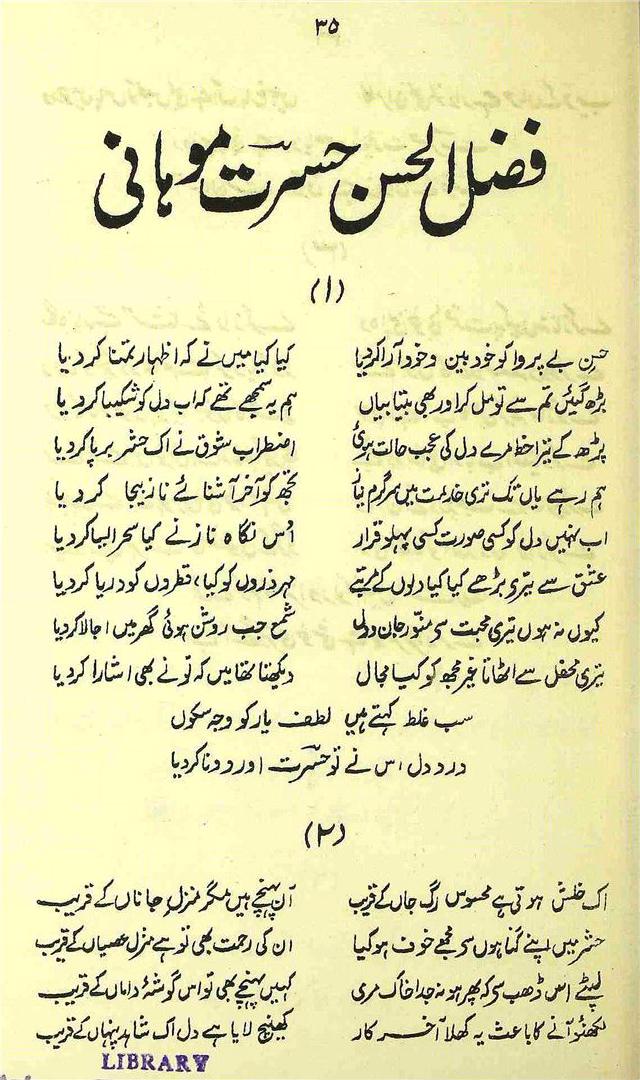 ۳۵
فضل الحسن حسرت موہانی
(۱)
حسن بے پروا کو خود بین و خود آرا کر دیا کیا کیا میں نے کہ اظہار تمنا کر دیا
بڑھ گئیں تم سے تو مل کر اور بھی بیتابیاں ہم یہ سمجھے تھے کہ اب دل کو شکیبا کر دیا
پڑھ کے تیرا خط مرے دل کی عجب حالت ہوئی اضطراب شوق نے اک حشر برپا کر دیا
ہم رہے یاں تک تری خدمت میں سرگرم نیاز تجھ کو آخر آشنائے ناز بیجا کر دیا
اب نہیں دل کو کسی صورت کسی پہلو قرار اُس نگاہ ناز نے کیا سحر ایسا کر دیا
عشق سے تیری بڑھے کیا کیا دلوں کے مرتبے مہر ذروں کو کیا، قطروں کو دریا کر دیا
کیوں نہ ہوں تیری محبت سی منور جان و دل شمع جب روشن ہوئی گھر میں اجالا کر دیا
تیری محفل سے اٹھاتا غیر مجھ کو کیا مجال دیکھتا تھا میں کہ تو نے بھی اشارا کر دیا
سب غلط کہتے ہیں لطف یار کو وجہ سکوں
درد دل اس نے تو حسرت اور دونا کر دیا
(۲)
اک خلش ہوتی ہے محسوس رگ جاں کے قریب آن پہنچے ہیں مگر منزلِ جاناں کے قریب
حشر میں اپنے گناہوں سی مجھے خوف ہو کیا ان کی رحمت بھی تو ہے منزل عصیاں کے قریب
لپٹے اس ڈھب سی کہ پھر ہو نہ جدا خاک مری کہیں پہنچے بھی تو اس گوشۂ داماں کے قریب
لکھنؤ آنے کا باعث یہ کھلا آخر کار کھینچ لایا ہے دل اک شاہد پنہاں کے قریب
LIBRARY